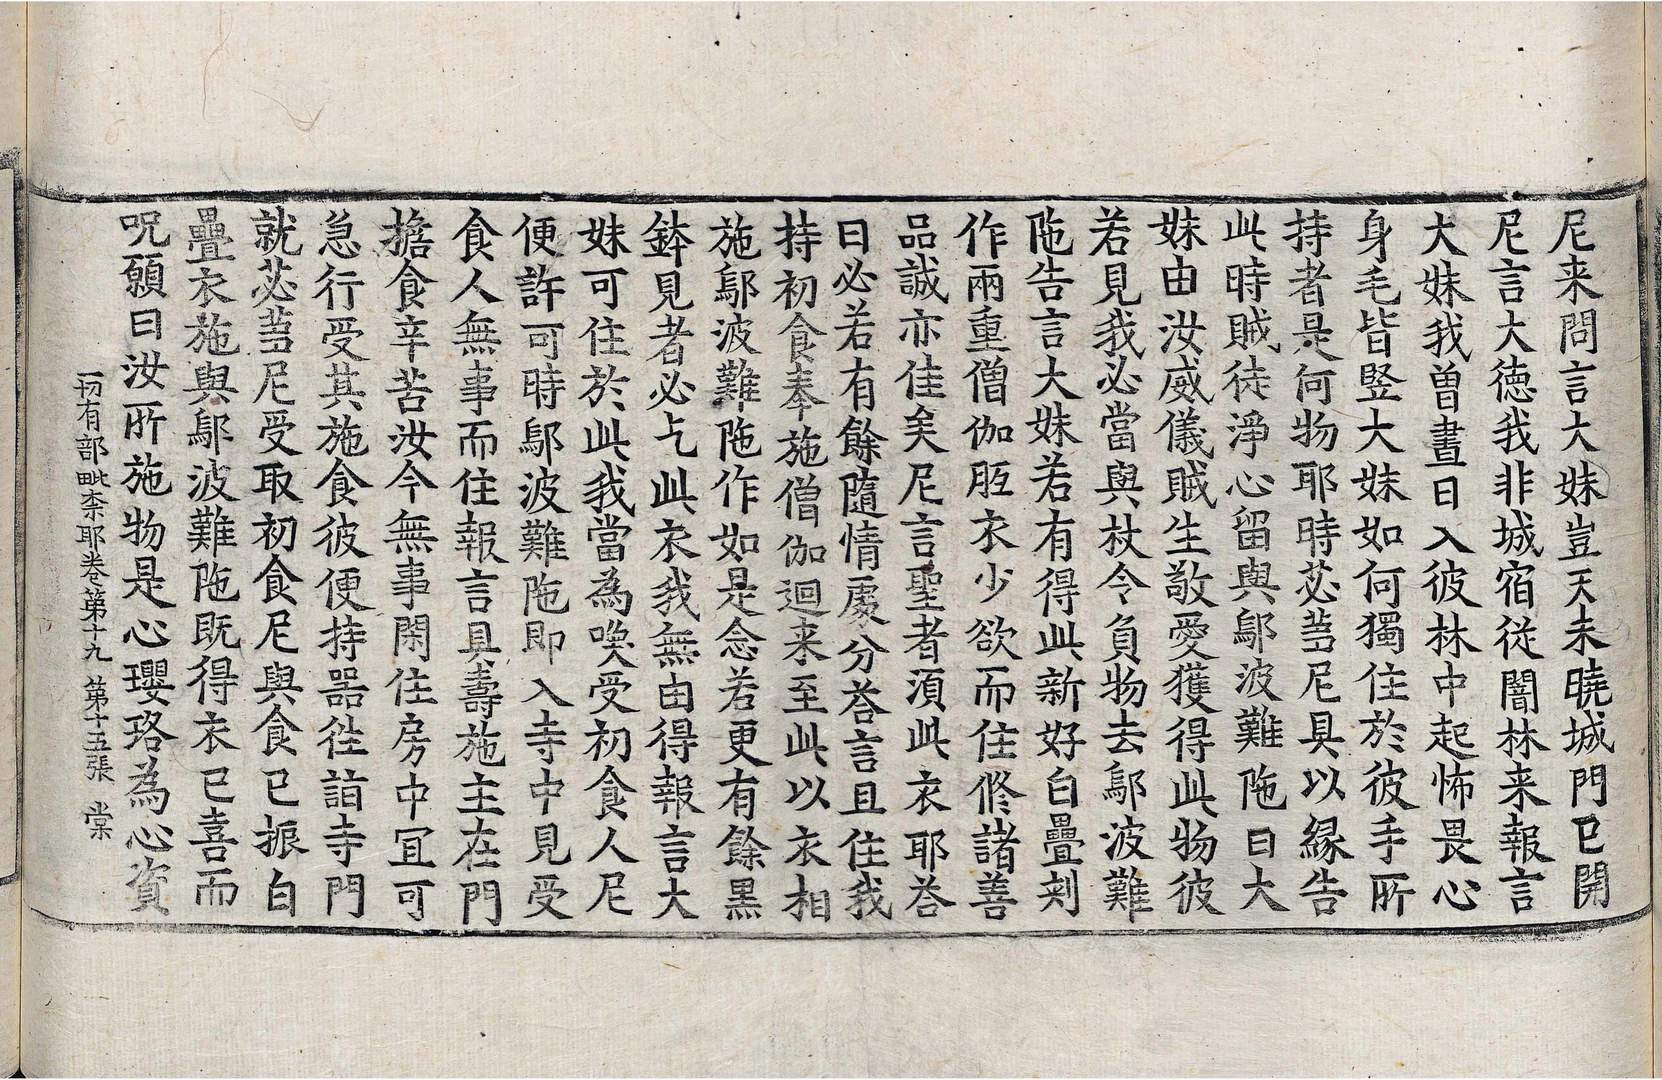 尼来問言大妹豈天未曉城門已開
尼言大德我非城宿従闇林来報言
大妹我曽晝日入彼林中起怖畏心
身毛皆竪大妹如何獨住於彼手所
持者是何物耶時苾芻尼具以縁告
此時賊徒淨心留與鄔波難陁曰大
妹由汝威儀賊生敬愛獲得此物彼
若見我必當與杖令負物去鄔波難
陁告言大妹若有得此新好白疊刾
作兩重僧伽胝衣少欲而住修諸善
品誠亦佳矣尼言聖者湏此衣耶荅
曰必若有餘隨情處分荅言且住我
持初食奉施僧伽迴来至此以衣相
施鄔波難陁作如是念若更有餘黑
鉢見者必乞此衣我無由得報言大
妹可住於此我當為喚受初食人尼
便許可時鄔波難陁即入寺中見受
食人無事而住報言具壽施主在門
擔食辛苦汝今無事閑住房中冝可
急行受其施食彼便持器徃詣寺門
就苾芻尼受取初食尼與食已振白
疊衣施與鄔波難陁既得衣已喜而
呪願曰汝所施物是心瓔珞為心資
一切有部毗奈耶卷第十九 第十五張 棠